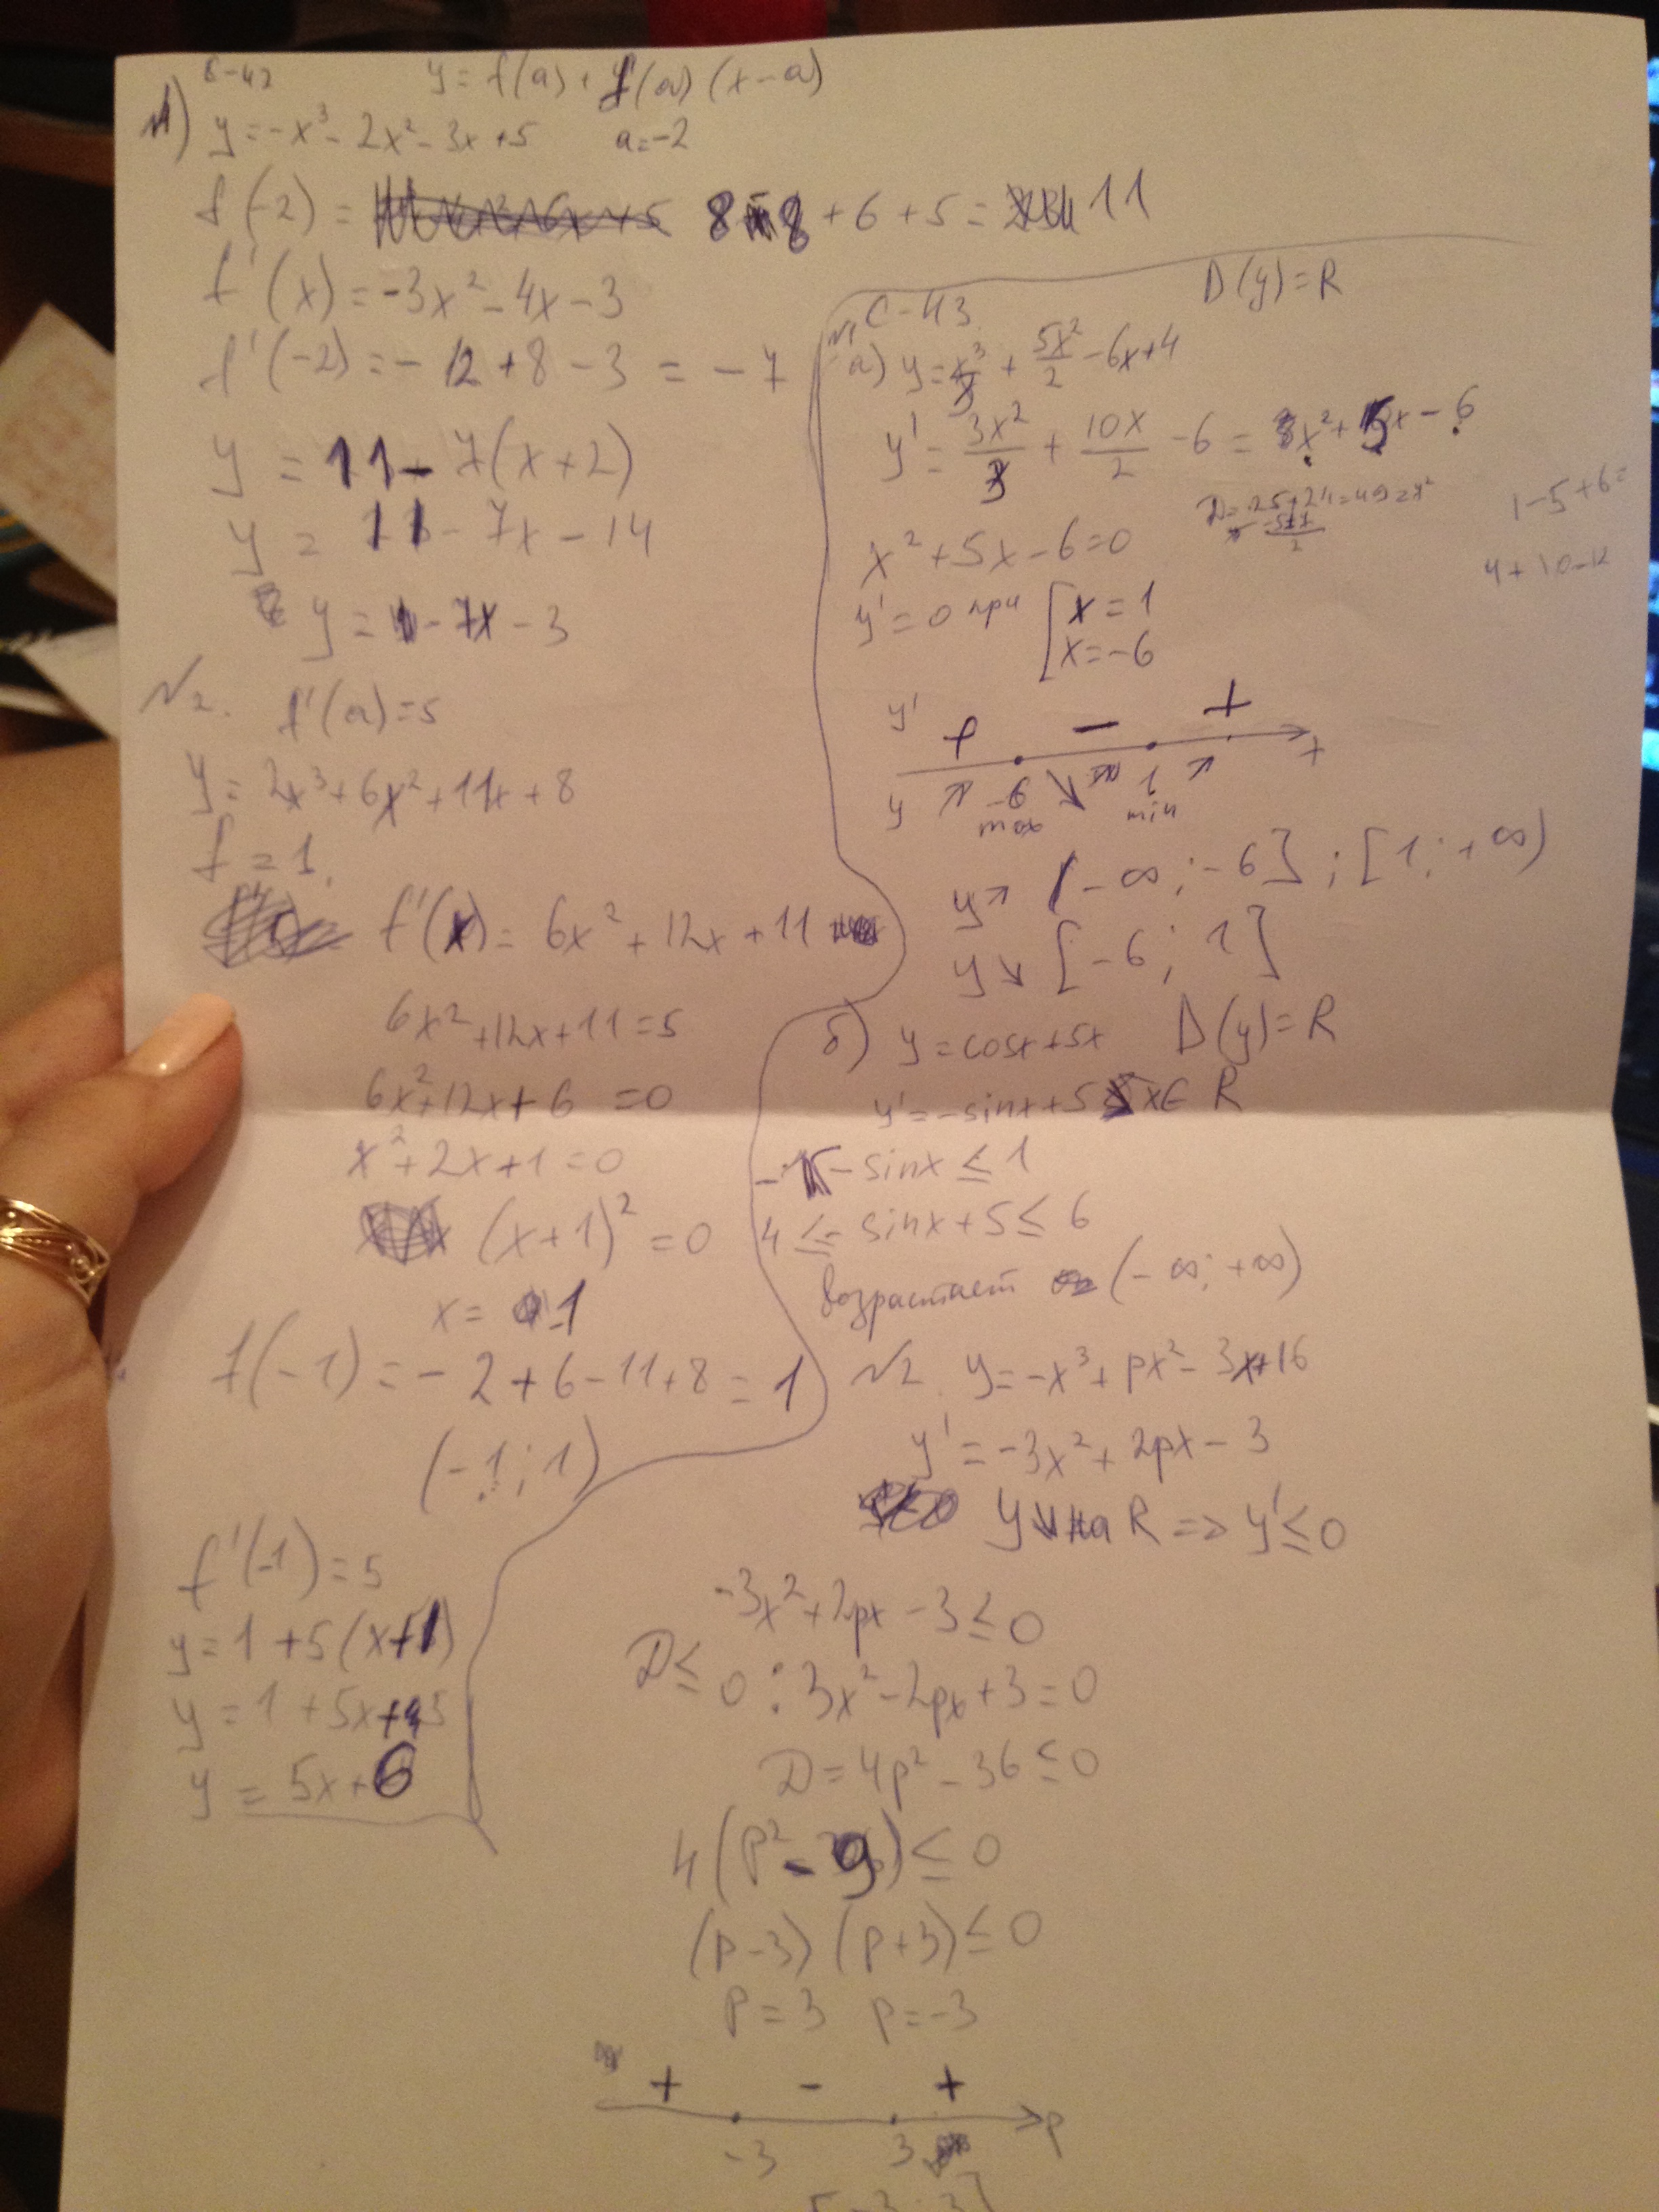 С-42
y = f(a) + f'(a) (x-a)
№1) y = -x³ - 2x² - 3x + 5   a = -2
f(-2) = 8 - 8 + 6 + 5 = 11
f'(x) = -3x² - 4x - 3
f'(-2) = -12 + 8 - 3 = -7
y = 11 - 7(x+2)
y = 11 - 7x - 14
y = -7x - 3
№2. f'(a) = 5
y = 2x³ + 6x² + 11x + 8
f = 1
f'(x) = 6x² + 12x + 11
6x² + 12x + 11 = 5
6x² + 12x + 6 = 0
x² + 2x + 1 = 0
(x+1)² = 0
x = -1
f(-1) = -2 + 6 - 11 + 8 = 1
(-1; 1)
f'(-1) = 5
y = 1 + 5(x+1)
y = 1 + 5x + 5
y = 5x + 6
С-43
D(y) = R
№1
а) y = x³/3 + 5x²/2 - 6x + 4
y' = 3x²/3 + 10x/2 - 6 = x² + 5x - 6
D = 25 + 24 = 49 = 7²
1 - 5 + 6 =
4 + 10 - 12
x² + 5x - 6 = 0
y' = 0 при [x = 1
x = -6
y' + - + x
y ↗ -6 ↘ 1 ↗
max min
y↗ (-∞; -6] ; [1; +∞)
y↘ [-6; 1]
б) y = cosx + 5x   D(y) = R
y' = -sinx + 5   x∈R
-1 ≤ -sinx ≤ 1
4 ≤ -sinx + 5 ≤ 6
возрастает (-∞; +∞)
№2. y = -x³ + px² - 3x + 16
y' = -3x² + 2px - 3
y↘ на R => y' ≤ 0
-3x² + 2px - 3 ≤ 0
D ≤ 0 : 3x² - 2px + 3 = 0
D = 4p² - 36 ≤ 0
4(p² - 9) ≤ 0
(p-3)(p+3) ≤ 0
p = 3   p = -3
+ - +
-3 3 p
[-3; 3]